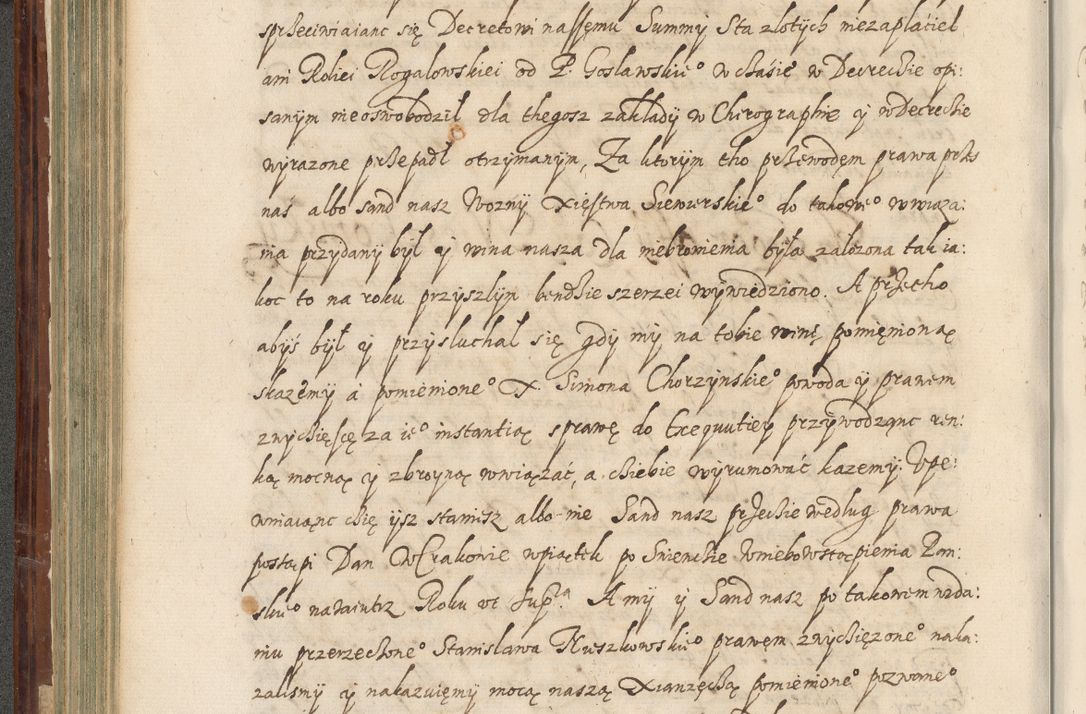 sprzeciwiaianc się Decretowi naszemu Summy Sta złotych niezapłaciel
ani Roliei Rogalowskiei od P. Gosławskiego w czasie w Decrecie opi:
sanym nieoswobodził dla thegosz zakłady w Chirographie y w Decrecie
wyrazone przepadł otrzymanym, Za ktorym tho przewodem prawa przes
nas albo Sand nasz Wozny Xięstwa Siewierskieo do takoweo wwiąza:
nia przydany był y wina nasza dla niebronienia była załozona tak ia:
koc to na roku przyszłym bendzie szerzei wywiedziono. A przeto
abyś był y przysłuchał się gdy my na tobie winę pomięnioną
skazemy á pomienioneo X. Simona Chorzynskieo powoda y prawem
zwyciesce za ieo instantią sprawę do Exequutiey przywodząnc ren:
ką mocną y zbroyną wwiązać, a ciebie wyrumować kazemy. Upe:
wniaiąnc cię ysz stanisz albo nie Sand nasz przecie według prawa
postąpi Dan WCrakowie wpiątek po Swiencie Wniebowstąpienia Pan:
skieo nazaiutrz Roku ut supra. A my y Sand nasz po takowem zda:
niu przerzeczoneo Stanisława Kuszkowskieo prawem zwycięzoneo naka:
zalismy y nakazuięmy mocą naszą Xianzęcką pomienioneo pozwaneo